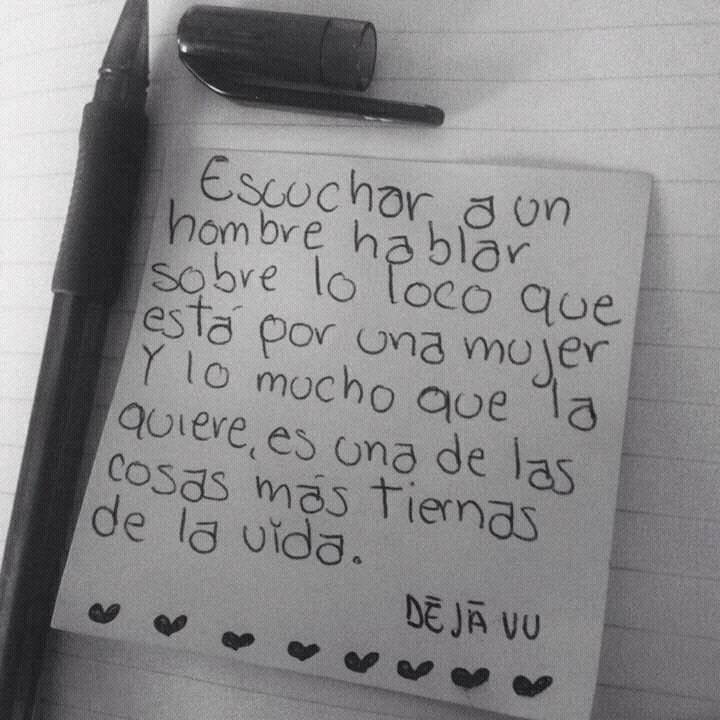 Escuchar a un
hombre hablar
sobre lo loco que
está por una mujer
Y lo mucho que la
quiere, es una de las
cosas más tiernas
de la vida.
DĒJĀ VU